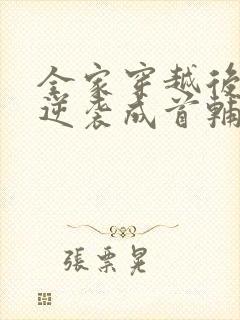 全家穿越後
逆袭成首輔
張票晃